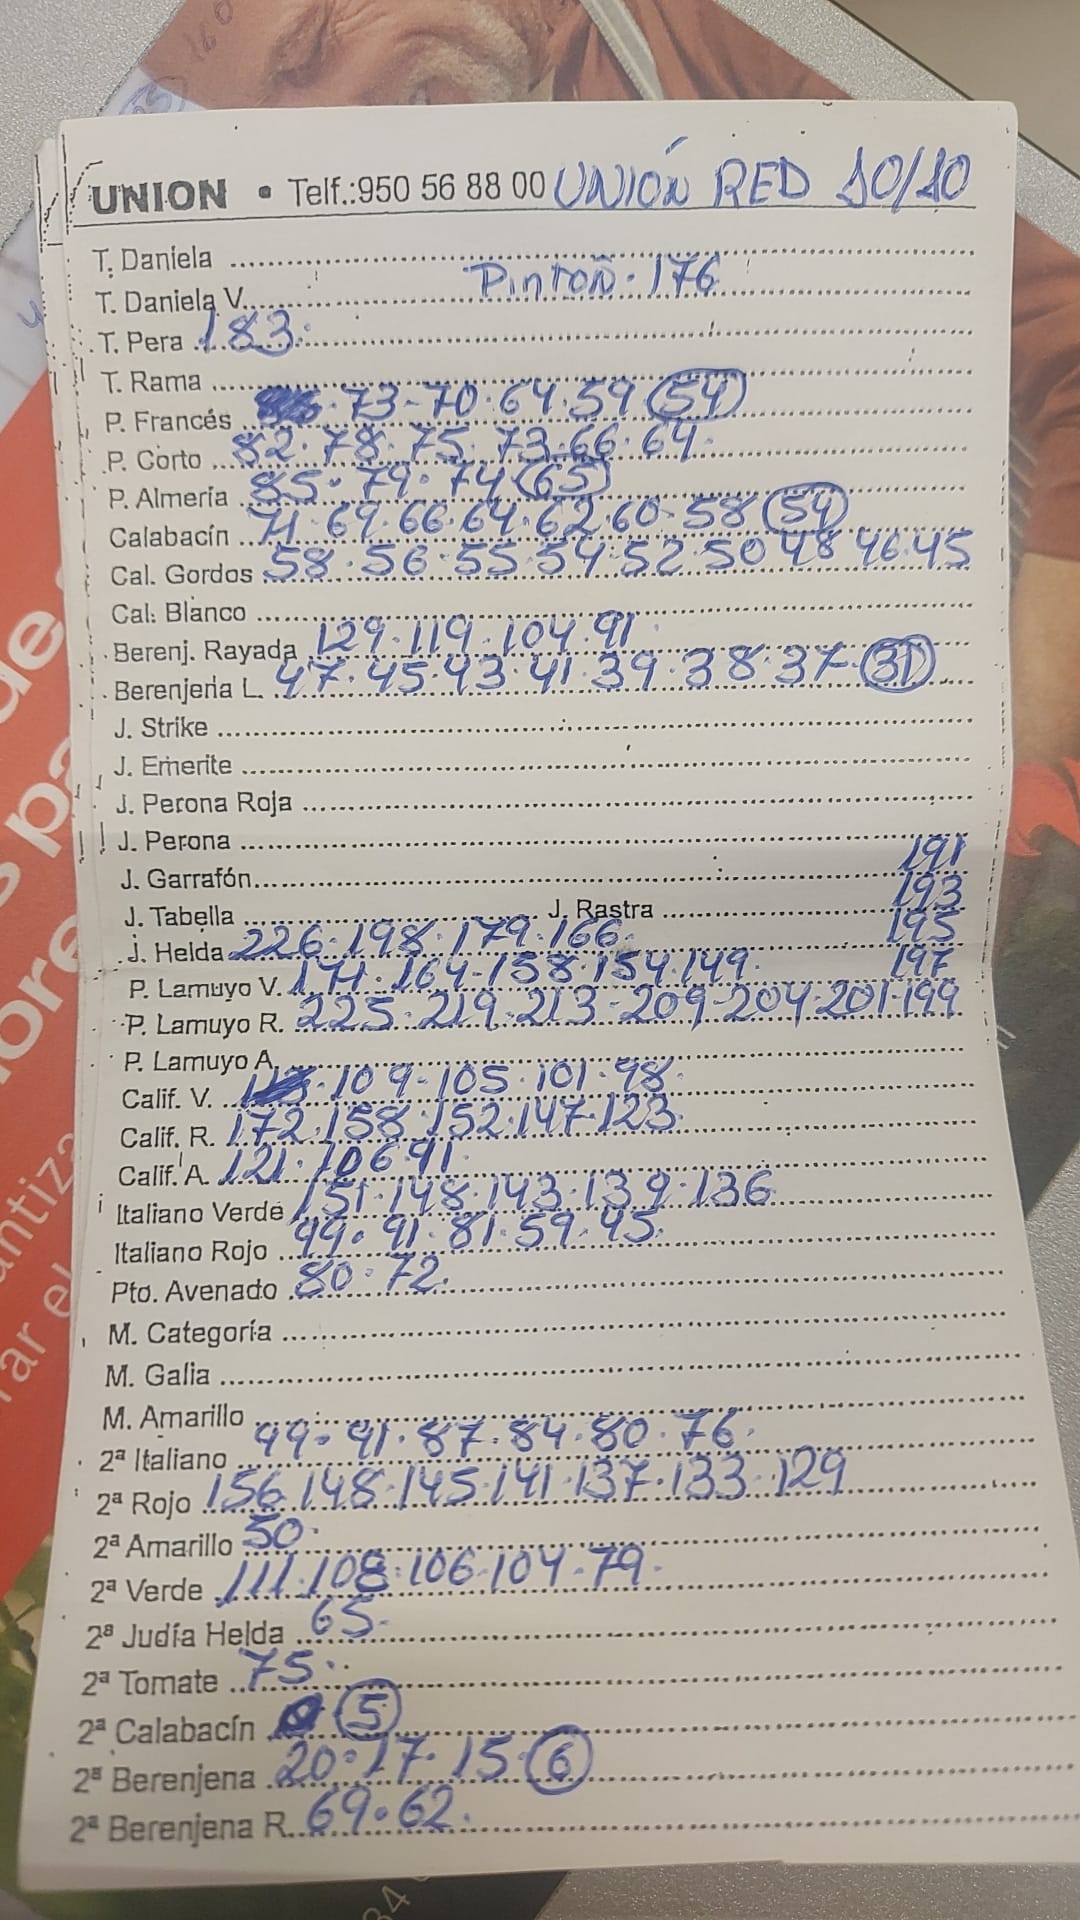 UNION • Telf.:950 56 88 00 UNIÓN RED 10/10
T. Daniela
T. Daniela V. Pinton · 176
T. Pera 183.
T. Rama
P. Francés 73-70.64.59 (54)
P. Corto 82.78.75.73.66.64.
P. Almería 85.79.74 (65)
Calabacín 71.69.66.64.62.60.58 (54)
Cal. Gordos 58.56.55.54.52.50 48 46.45
Cal. Blanco
Berenj. Rayada 129.119.104.91.
Berenjena L. 47.45.43.41.39.38.37- (31)
J. Strike
J. Emerite
J. Perona Roja
J. Perona
191
J. Garrafón
193
J. Tabella J. Rastra
195
J. Helda 226.198.179.166.
197
P. Lamuyo V. 171.164-158.154.149.
P. Lamuyo R. 225.219.213-209-204.201.199
P. Lamuyo A.
Calif. V. 109-105.101.98.
Calif. R. 172.158.152.147.123.
Calif. A. 121.106 91.
Italiano Verde 151.148.143.139.136
Italiano Rojo 99.91.81.59.45.
Pto. Avenado 80.72.
M. Categoría
M. Galia
M. Amarillo
2ª Italiano 99.91.87.84.80.76.
2ª Rojo 156.148.145.141.137.133.129
2ª Amarillo 50.
2ª Verde 111.108.106.104.79.
2ª Judía Helda 65.
2ª Tomate 75.
2ª Calabacín (5)
2ª Berenjena 20.17.15. (6)
2ª Berenjena R. 69.62.